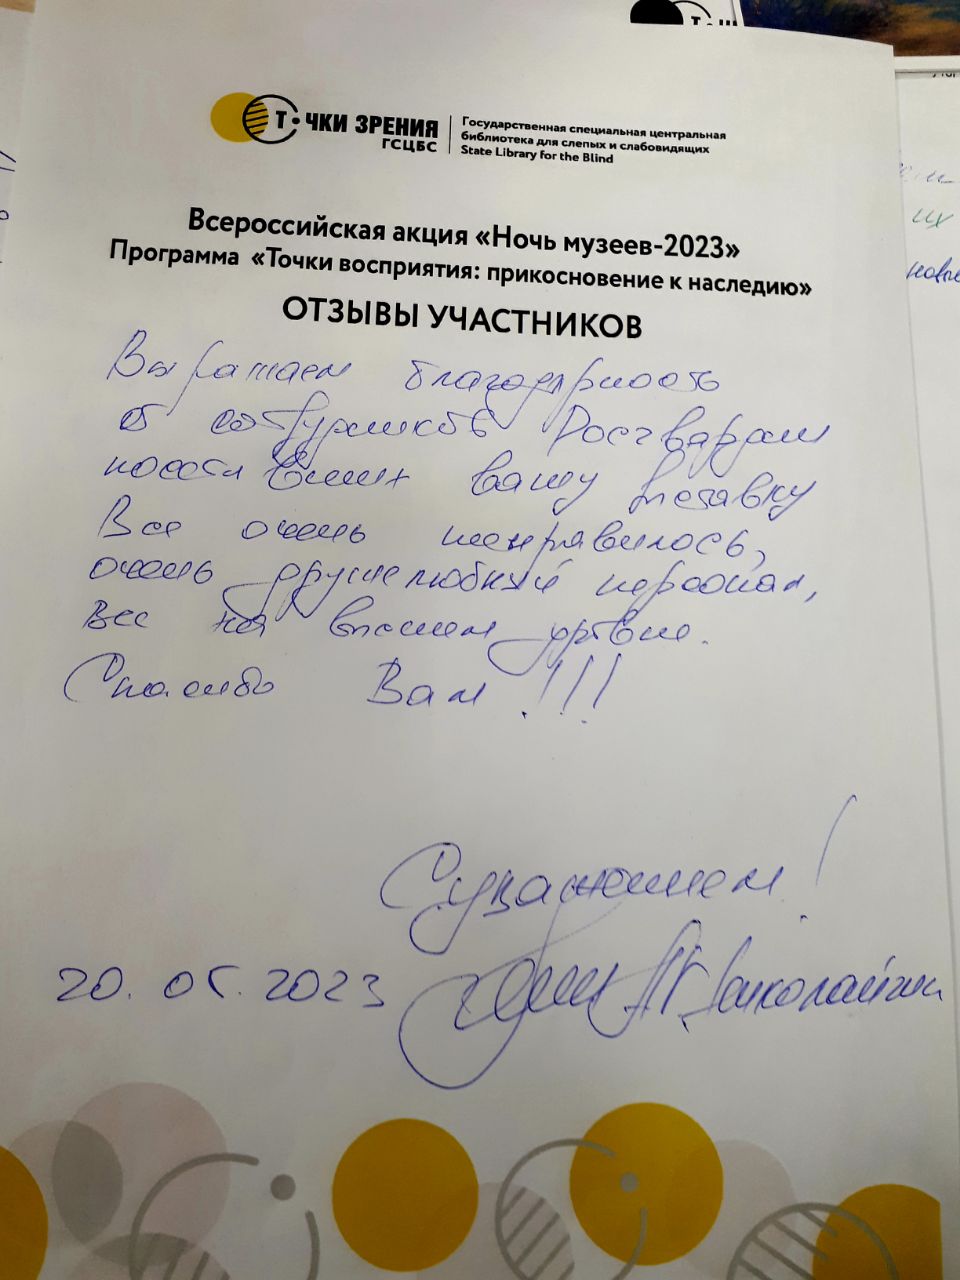 Т•ЧКИ ЗРЕНИЯ
ГСЦБС
Государственная специальная центральная
библиотека для слепых и слабовидящих
State Library for the Blind
Всероссийская акция «Ночь музеев-2023»
Программа «Точки восприятия: прикосновение к наследию»
ОТЗЫВЫ УЧАСТНИКОВ
Выражаем благодарность
от сотрудников Росгвардии
посетивших вашу выставку
Все очень понравилось,
очень дружелюбный персонал,
Все на высшем уровне.
Спасибо Вам!!!
С уважением!
20.05.2023